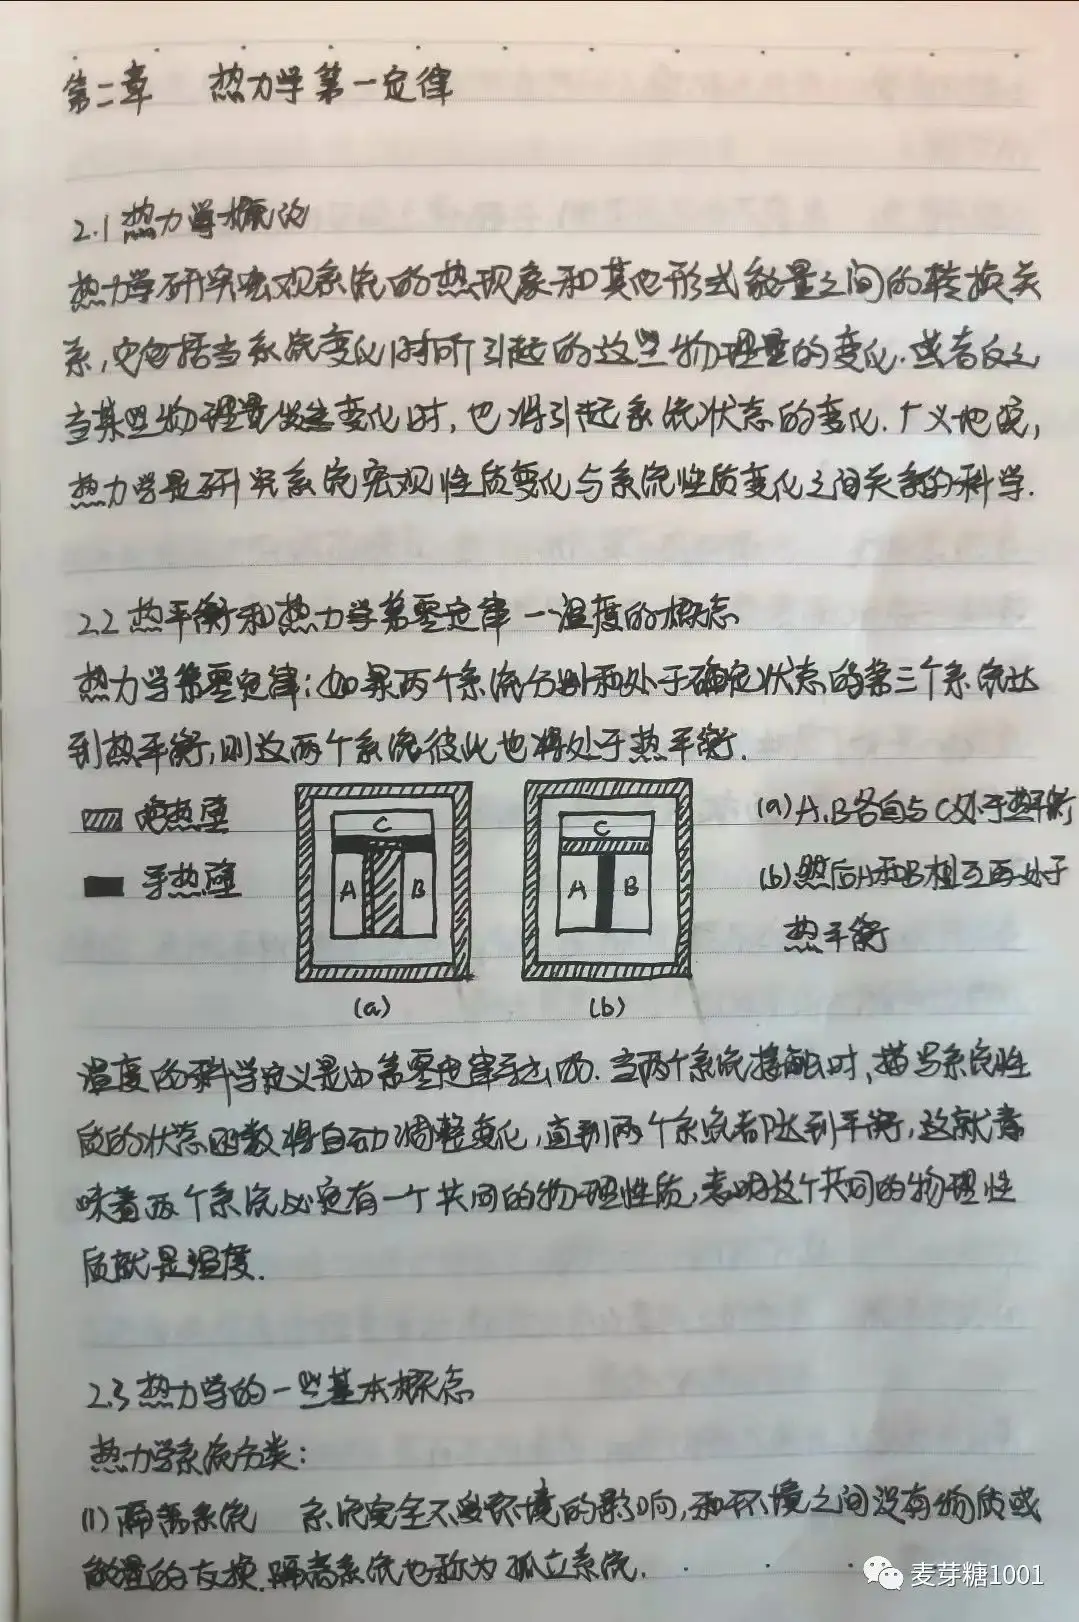 第二章 热力学第一定律
2.1 热力学概论
热力学研究宏观系统的热现象和其他形式能量之间的转换关
系,它包括当系统变化时所引起的这些物理量的变化.或者反之
当某些物理量发生变化时,也将引起系统状态的变化.广义地说,
热力学是研究系统宏观性质变化与系统性质变化之间关系的科学.
2.2 热平衡和热力学第零定律—温度的概念
热力学第零定律:如果两个系统分别和处于确定状态的第三个系统达
到热平衡,则这两个系统彼此也将处于热平衡.
绝热壁
导热壁
C
A B
(a)
C
A B
(b)
(a) A、B各自与C处于热平衡
(b) 然后A和B相互再处于
热平衡
温度的科学定义是由第零定律导出的.当两个系统接触时,描写系统性
质的状态函数将自动调整变化,直到两个系统都达到平衡,这就意
味着两个系统必定有一个共同的物理性质,表明这个共同的物理性
质就是温度.
2.3 热力学的一些基本概念
热力学系统分类:
(1) 隔离系统 系统完全不受环境的影响,和环境之间没有物质或
能量的交换.隔离系统也称为孤立系统.
麦芽糖1001